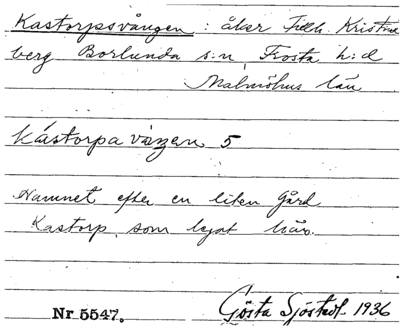 Kastorpsvången : åker Tillh. Kristine
berg Borlunda s:n, Frosta h:d
Malmöhus län
Kástorpa váŋen 5
Namnet efter en liten Gård
Kastorp, som legat här.
Nr 5547. Gösta Sjöstedt 1936